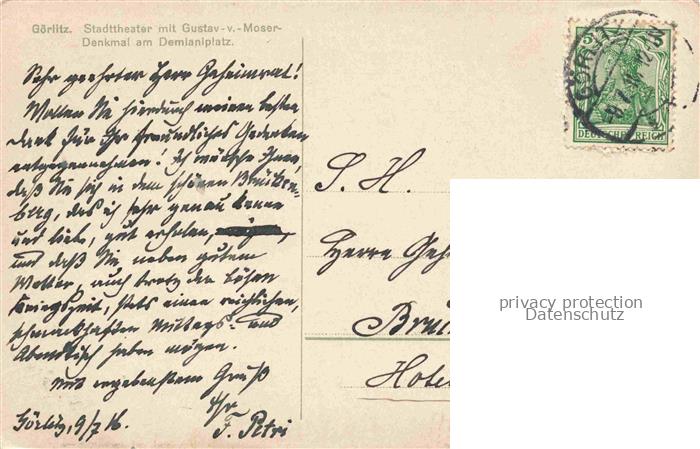 Görlitz. Stadttheater mit Gustav-v.-Moser-
Denkmal am Demianiplatz.
Sehr geehrter Herr Geheimrat!
Wollen Sie hierdurch meinen besten
Dank für Ihr freundliches Gedenken
entgegennehmen! Ich wünsche Ihnen,
daß Sie sich in dem schönen Brücken-
berg, das ich sehr genau kenne
und liebe, gut erholen,
und daß Sie neben gutem
Wetter, auch trotz der bösen
Kriegszeit, stets einen reichlichen,
schmackhaften Mittags- und
Abendtisch haben mögen.
Mit ergebenstem Gruß
Ihr
Görlitz, 9/7 16. F. Petri
DEUTSCHES REICH
5 5
GÖRLITZ
S. H.
Herrn Geh
Brück
Hotel
privacy protection
Datenschutz